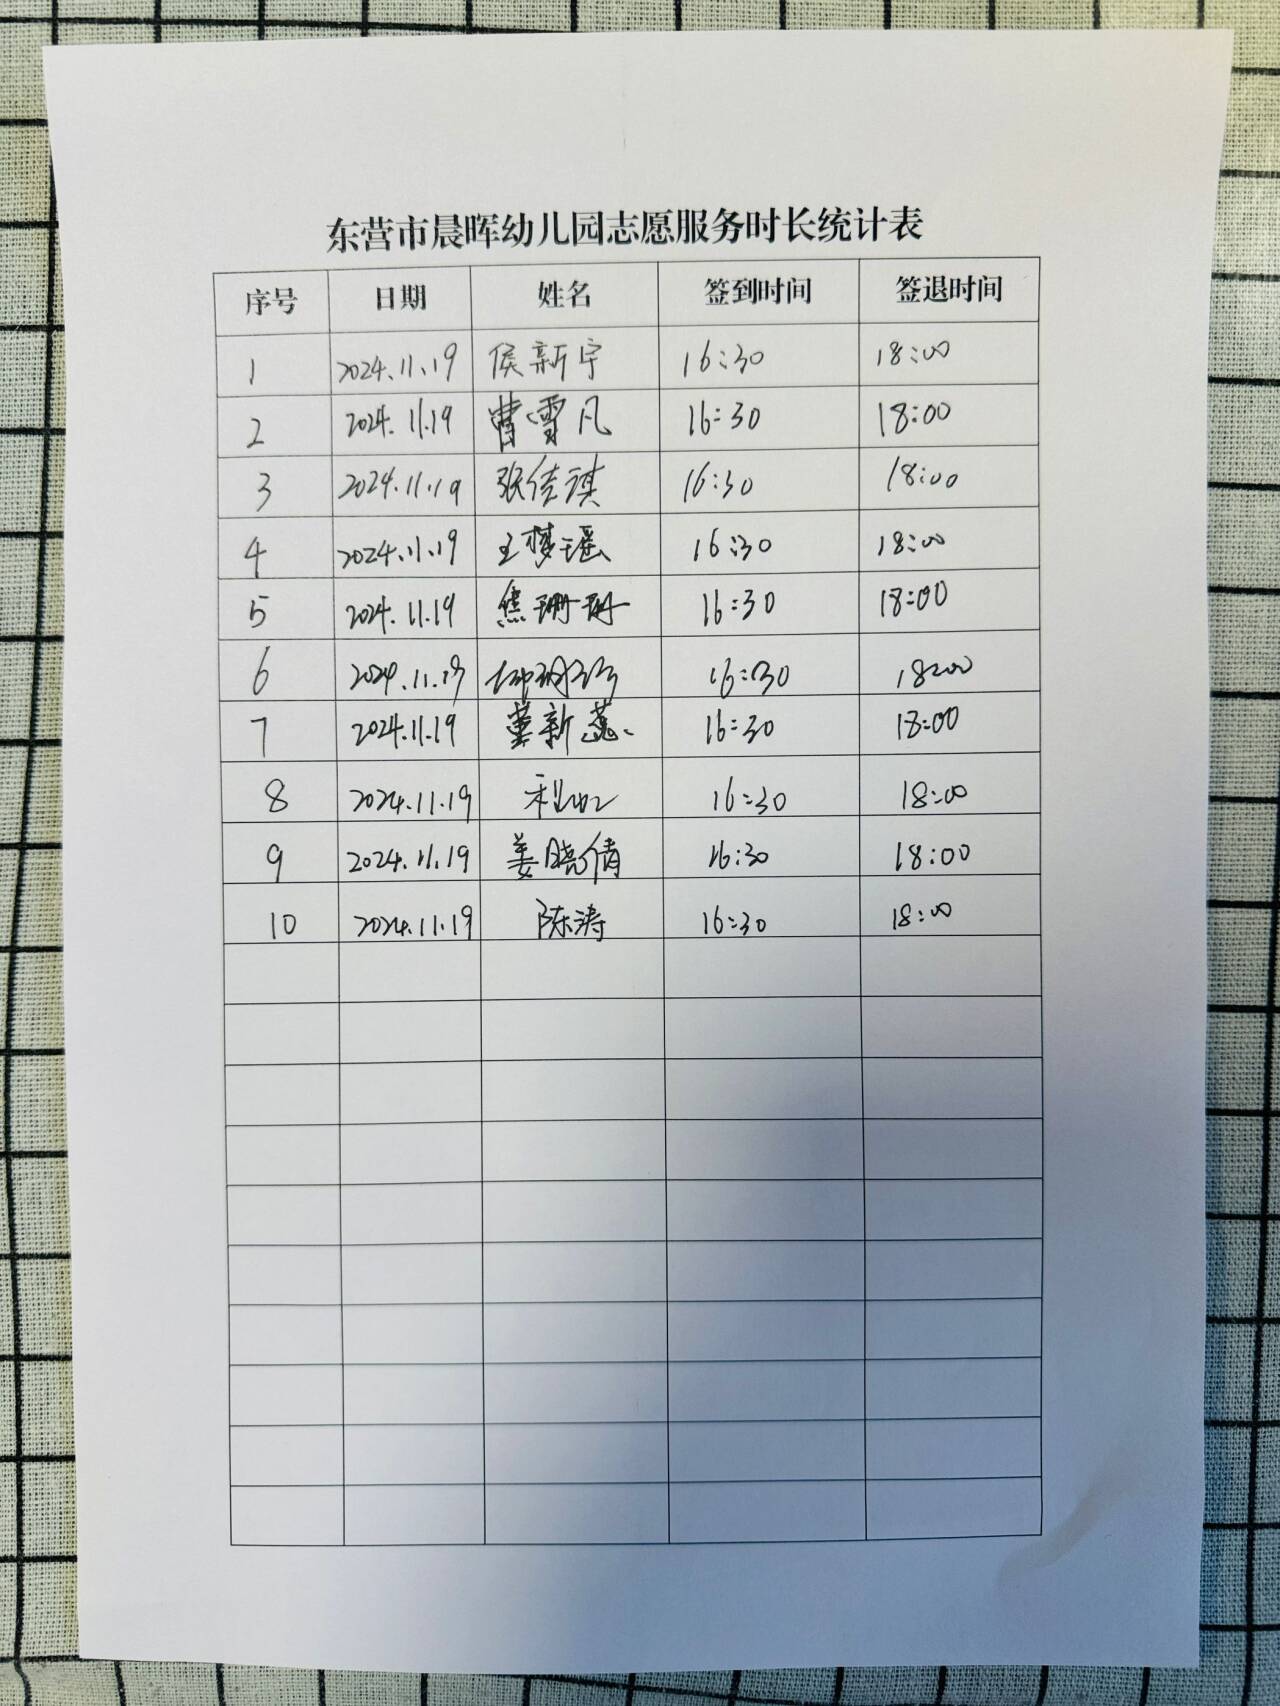 东营市晨晖幼儿园志愿服务时长统计表
序号 日期 姓名 签到时间 签退时间
1 2024.11.19 侯新宇 16:30 18:00
2 2024.11.19 曹雪凡 16:30 18:00
3 2024.11.19 张佳琪 16:30 18:00
4 2024.11.19 王梦瑶 16:30 18:00
5 2024.11.19 焦珊珊 16:30 18:00
6 2024.11.19 16:30 18:00
7 2024.11.19 董新蕊 16:30 18:00
8 2024.11.19 16:30 18:00
9 2024.11.19 姜晓倩 16:30 18:00
10 2024.11.19 陈涛 16:30 18:00